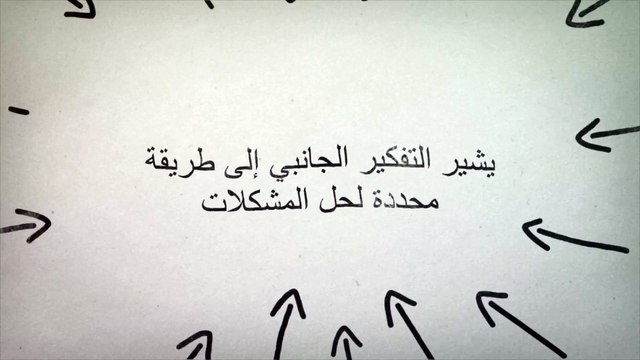 يشير التفكير الجانبي إلى طريقة
محددة لحل المشكلات